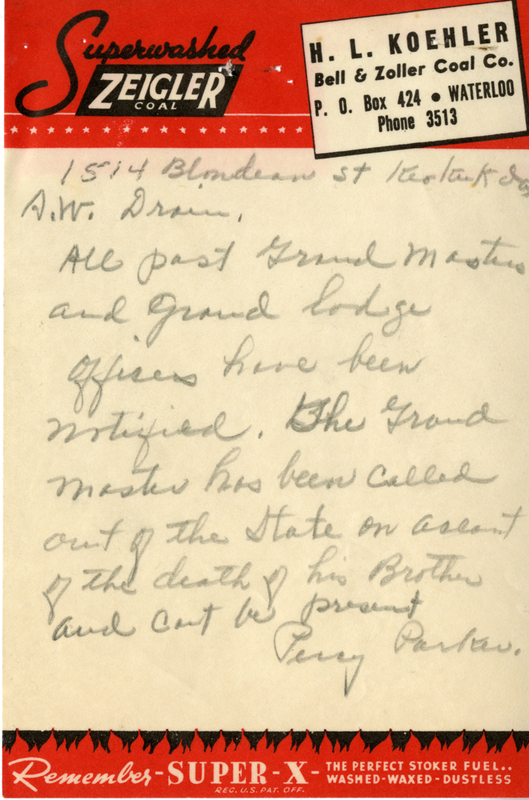 Superwashed
ZEIGLER
COAL
H. L. KOEHLER
Bell & Zoller Coal Co.
P. O. Box 424 • WATERLOO
Phone 3513
1514 Blondeau St Keokuk Ia
A.W. Drain,
All past Grand Masters
and Grand lodge
officers have been
notified. The Grand
Master has been called
out of the State on account
of the death of his Brother
and cant be present
Percy Parker.
Remember-SUPER-X-THE PERFECT STOKER FUEL..
WASHED-WAXED-DUSTLESS
REG. U.S. PAT. OFF.